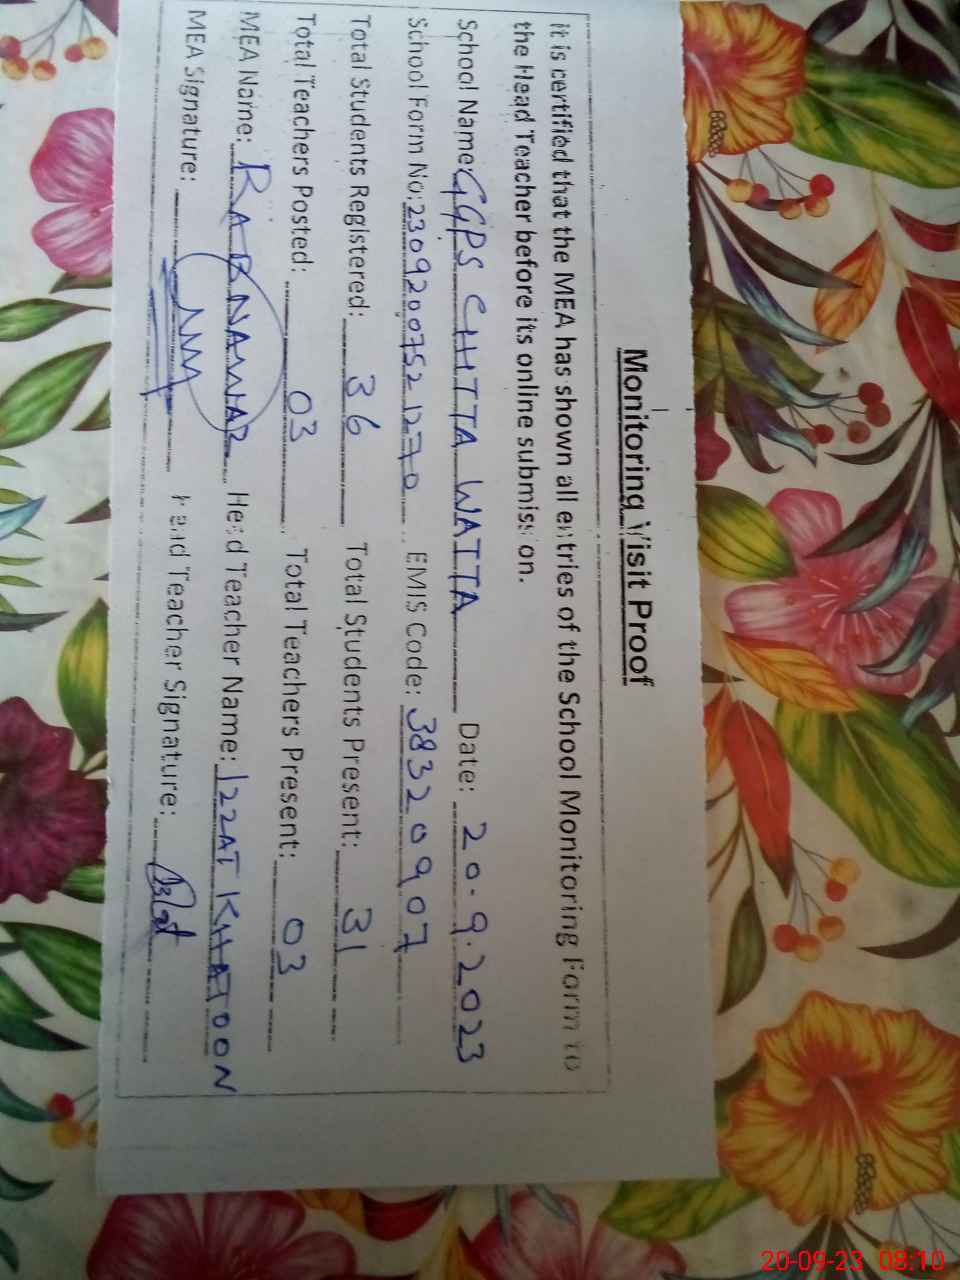 Monitoring Visit Proof
it is certified that the MEA has shown all entries of the School Monitoring Form to
the Head Teacher before its online submission.
School Name: GGPS CHITTA WATTA Date: 20.9.2023
School Form No: 23092007521270 EMIS Code: 38320907
Total Students Registered: 36 Total Students Present: 31
Total Teachers Posted: 03 Total Teachers Present: 03
MEA Name: RABNAWAZ Head Teacher Name: IZZAT KHATOON
MEA Signature: Head Teacher Signature:
20-09-23 08:10